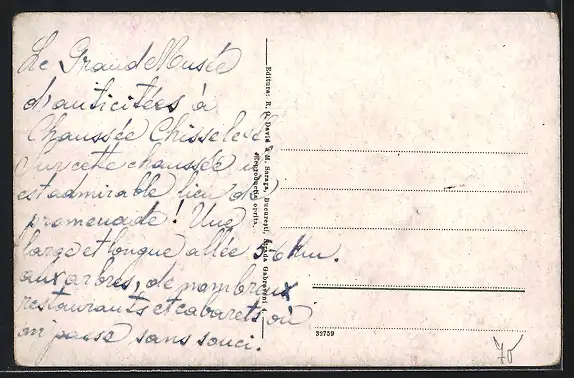 Le Grand Musée
d'anticitées à
Chaussée Chisseleff
Sur cette chaussée u
est admirable lieu de
promenade. Une
large et longue allée 5-6 Km.
aux arbres, de nombreux
restaurants et cabarets où
on passe sans souci.
Editura: R. David & M. Saraga, București,
Reproducția oprită.
32759
70